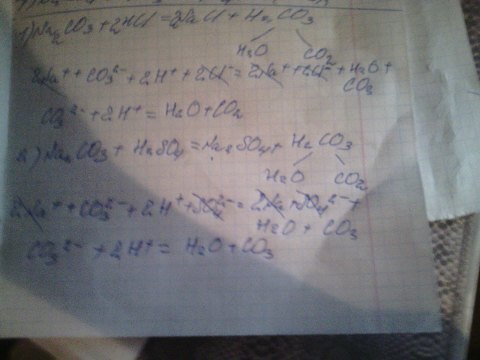 1) Na2CO3 + 2HCl = 2NaCl + H2CO3
H2O CO2
2Na+ + CO3 2- + 2H+ + 2Cl- = 2Na+ + 2Cl- + H2O +
CO2
CO3 2- + 2H+ = H2O + CO2
2) Na2CO3 + H2SO4 = Na2SO4 + H2CO3
H2O CO2
2Na+ + CO3 2- + 2H+ + SO4 2- = 2Na+ + SO4 2- +
H2O + CO3
CO3 2- + 2H+ = H2O + CO3